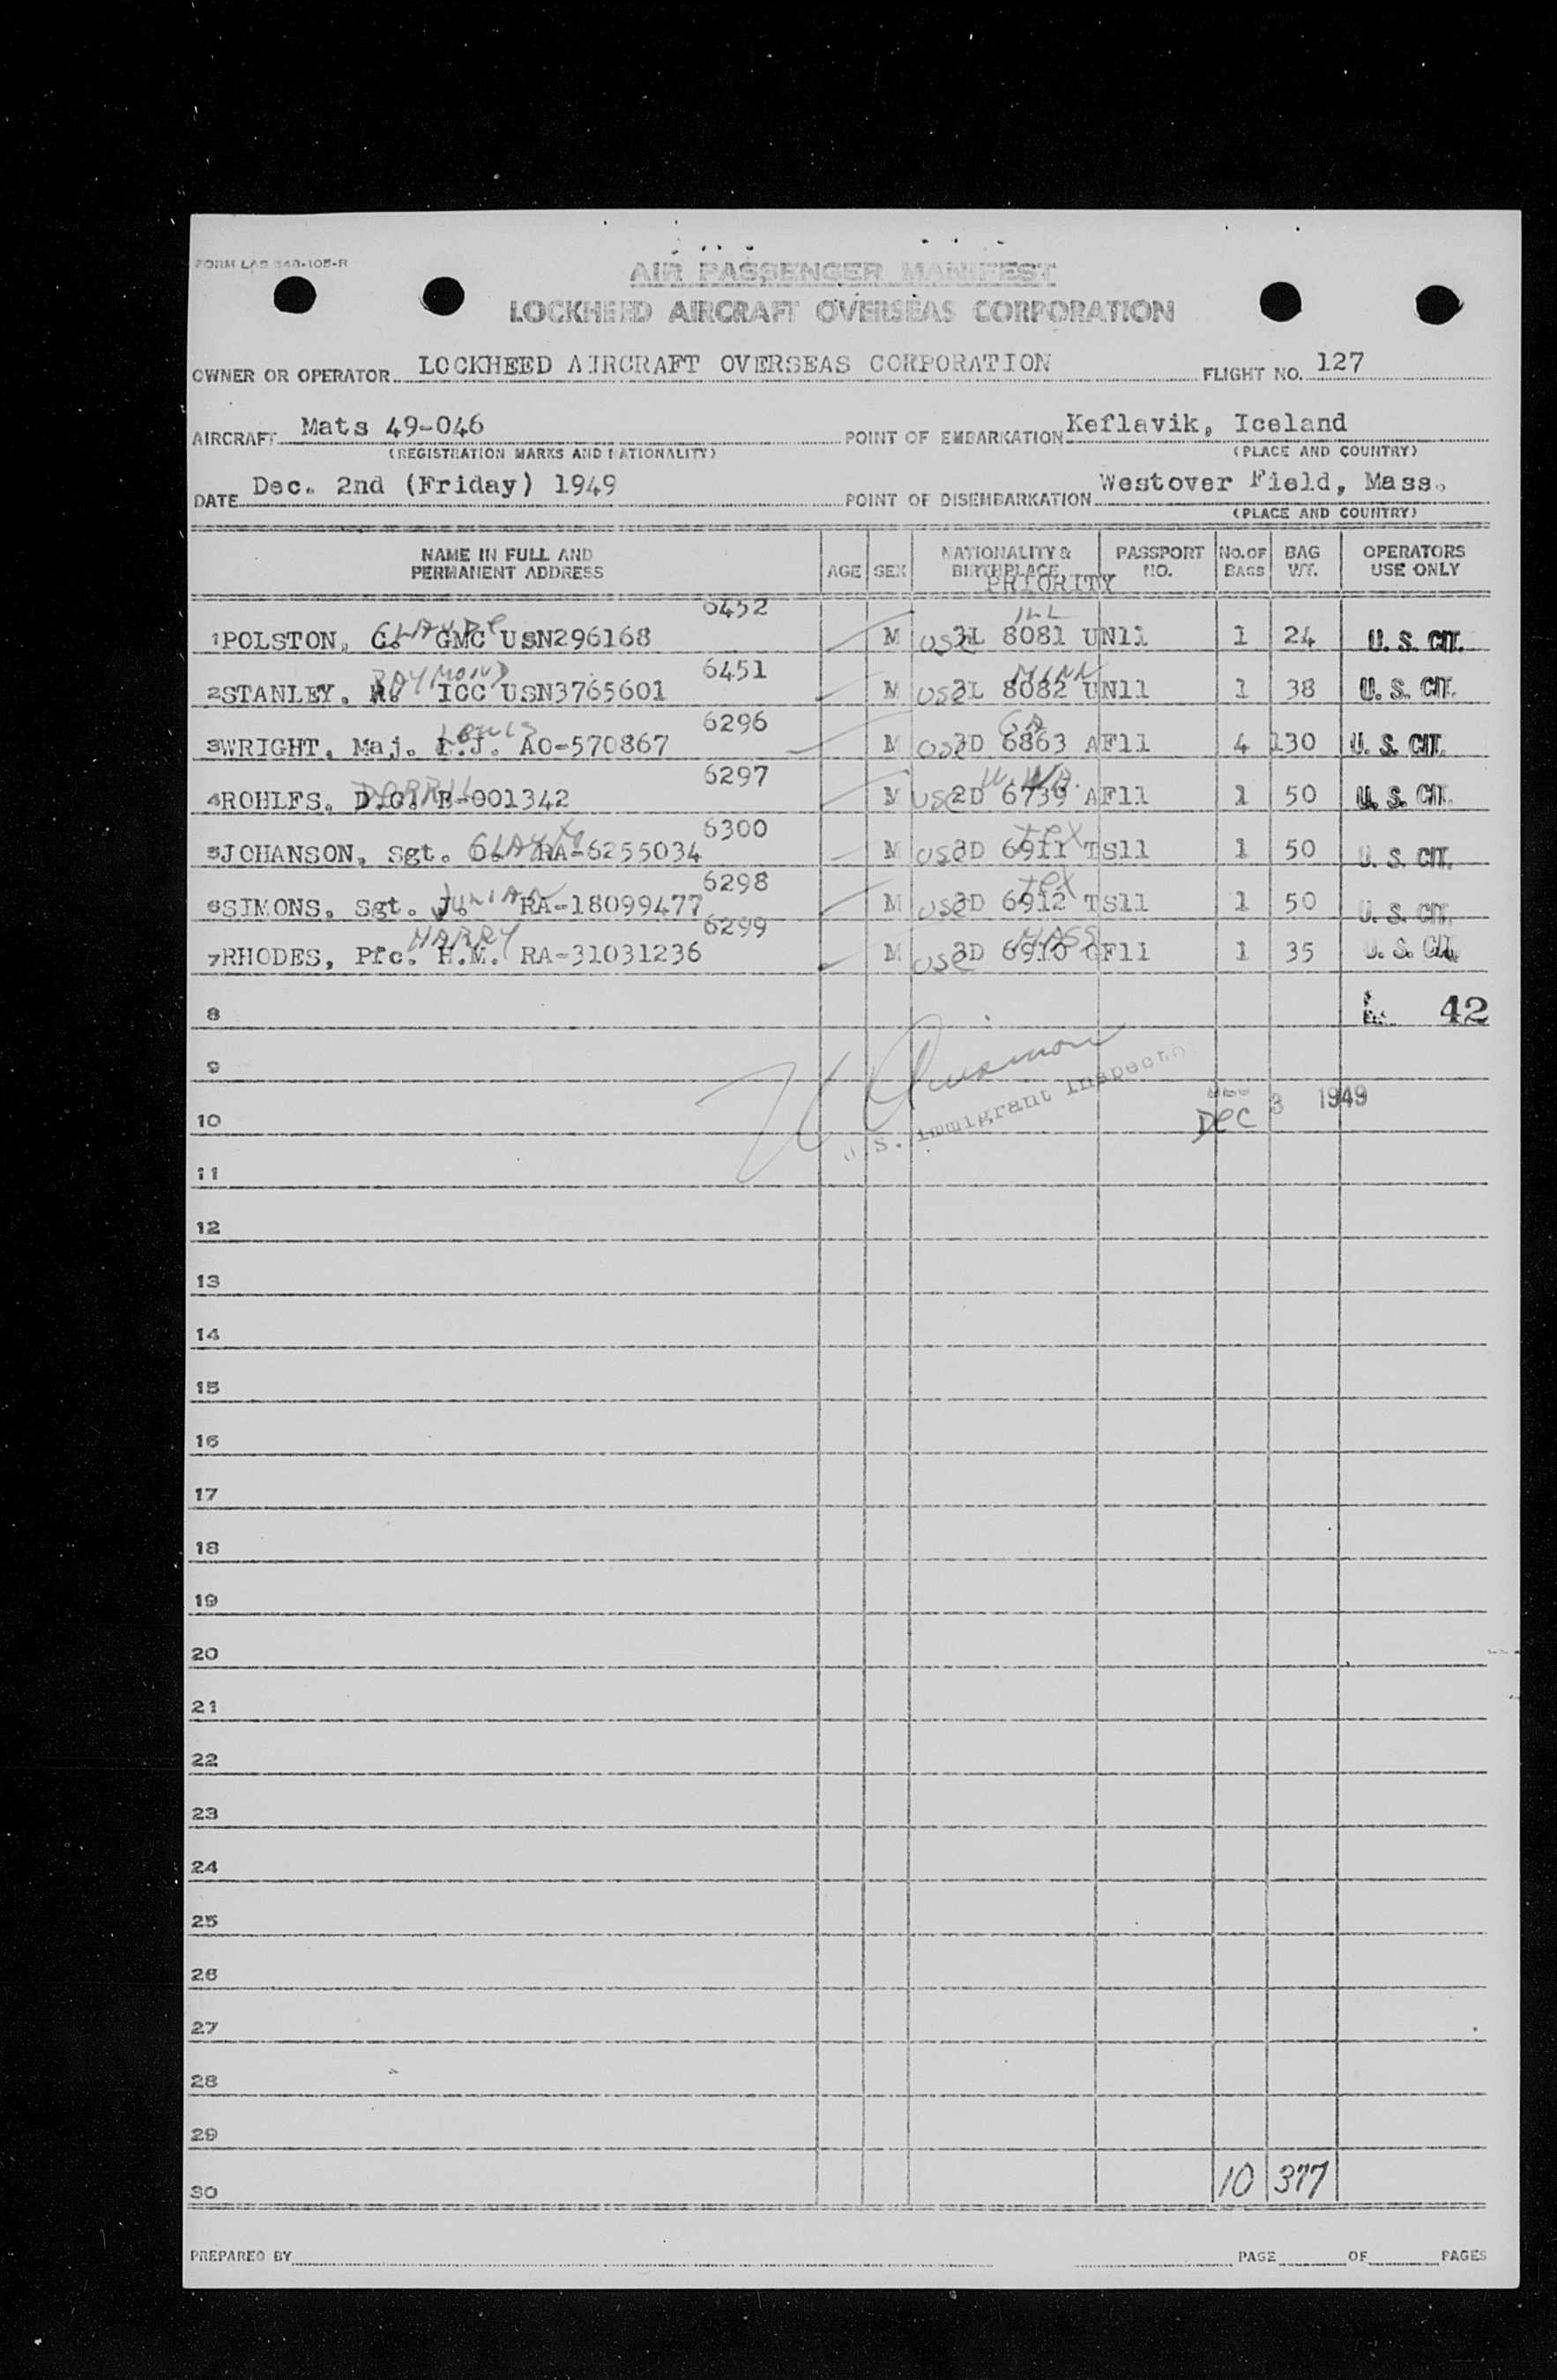 FORM LAS 548-105-R
AIR PASSENGER MANIFEST
LOCKHEED AIRCRAFT OVERSEAS CORPORATION
OWNER OR OPERATOR LOCKHEED AIRCRAFT OVERSEAS CORPORATION FLIGHT NO. 127
AIRCRAFT Mats 49-046 POINT OF EMBARKATION Keflavik, Iceland
(REGISTRATION MARKS AND NATIONALITY) (PLACE AND COUNTRY)
DATE Dec. 2nd (Friday) 1949 POINT OF DISEMBARKATION Westover Field, Mass.
(PLACE AND COUNTRY)
NAME IN FULL AND PERMANENT ADDRESS AGE SEX NATIONALITY & BIRTHPLACE PASSPORT NO. NO. OF BAGS BAG WT. OPERATORS USE ONLY
PRIORITY
6452 ILL
1 POLSTON, C. CLAUDE GMC USN296168 M USC 3L 8081 UN11 1 24 U. S. CIT.
RAYMOND 6451 MINN
2 STANLEY, R. ICC USN3765601 M USC 3L 8082 UN11 1 38 U. S. CIT.
LEWIS 6296 GA
3 WRIGHT, Maj. L.J. AO-570867 M USC 3D 6863 AF11 4 130 U. S. CIT.
6297
4 ROHLFS, D.G. E-001342 M USC 2D 6739 AF11 1 50 U. S. CIT.
6300 TEX
5 JOHANSON, Sgt. RA-6255034 M USC 3D 6911 TS11 1 50 U. S. CIT.
6298 TEX
6 SIMONS, Sgt. J. RA-18099477 M USC 3D 6912 TS11 1 50 U. S. CIT.
HARRY 6299 MASS
7 RHODES, Pfc. H.M. RA-31031236 M USC 3D 6910 GF11 1 35 U. S. CIT.
8 42
9
U.S. Immigrant Inspector
10 DEC 3 1949
11
12
13
14
15
16
17
18
19
20
21
22
23
24
25
26
27
28
29
30 10 377
PREPARED BY PAGE OF PAGES